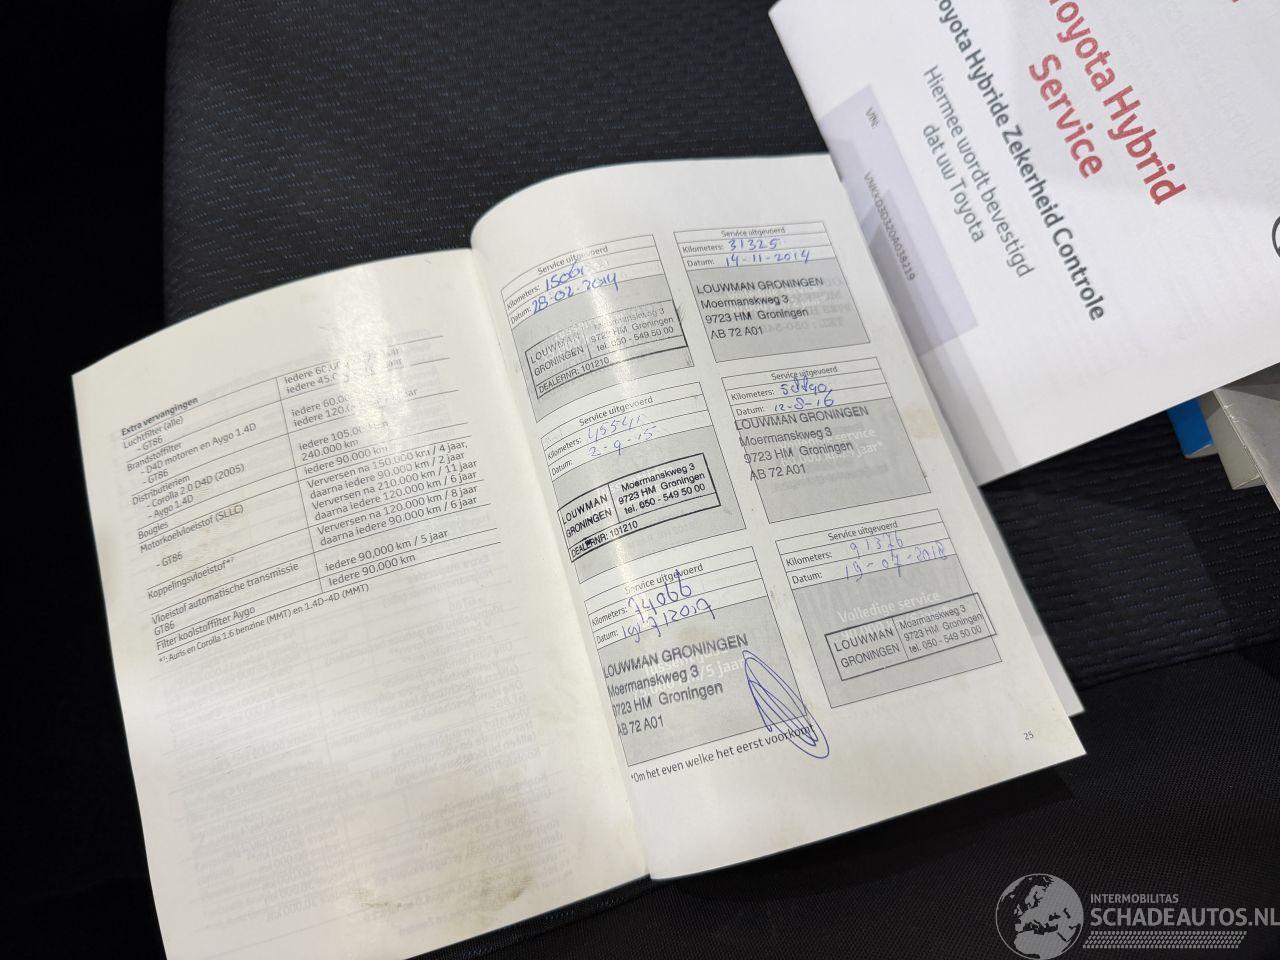 Extra vervangingen
Luchtfilter (alle)
- GT86
Brandstoffilter
- D4D motoren en Aygo 1.4D
- GT86
Distributieriem
- Corolla 2.0 D4D (2005)
- Aygo 1.4D
Bougies
Motorkoelvloeistof (SLLC)
- GT86
Koppelingsvloeistof*¹
Vloeistof automatische transmissie
GT86
Filter koolstoffilter Aygo
iedere 45.
iedere 60.
iedere 120.0
iedere 105.
240.000 km
iedere 90.000 km
Verversen na 150.000 km / 4 jaar,
daarna iedere 90.000 km / 2 jaar
Verversen na 210.000 km / 11 jaar
daarna iedere 120.000 km / 6 jaar
Verversen na 120.000 km / 8 jaar
daarna iedere 90.000 km / 6 jaar
iedere 90.000 km / 5 jaar
Iedere 90.000 km
*¹: Auris en Corolla 1.6 benzine (MMT) en 1.4D-4D (MMT)
Service uitgevoerd
Kilometers:
Datum: 28-02-2014
LOUWMAN GRONINGEN
Moermanskweg 3
9723 HM Groningen
tel. 050 - 549 50 00
DEALERNR: 101210
Service uitgevoerd
Kilometers: 31325
Datum: 14-11-2014
LOUWMAN GRONINGEN
Moermanskweg 3
9723 HM Groningen
AB 72 A01
Service uitgevoerd
Kilometers:
Datum: 2-9-15
LOUWMAN GRONINGEN
Moermanskweg 3
9723 HM Groningen
tel. 050 - 549 50 00
DEALERNR: 101210
Service uitgevoerd
Kilometers:
Datum: 12-8-16
LOUWMAN GRONINGEN
Moermanskweg 3
9723 HM Groningen
AB 72 A01
Service uitgevoerd
Kilometers: 74066
Datum: 19/7/2019
LOUWMAN GRONINGEN
Moermanskweg 3
9723 HM Groningen
AB 72 A01
Service uitgevoerd
Kilometers: 91376
Datum: 19-07-2018
Volledige service
LOUWMAN GRONINGEN
Moermanskweg 3
9723 HM Groningen
tel. 050 - 549 50 00
*Om het even welke het eerst voorkomt
25
Toyota Hybrid
Service
Toyota Hybride Zekerheid Controle
Hiermee wordt bevestigd
dat uw Toyota
VIN:
VNKKD3D320A038219
INTERMOBILITAS
SCHADEAUTOS.NL